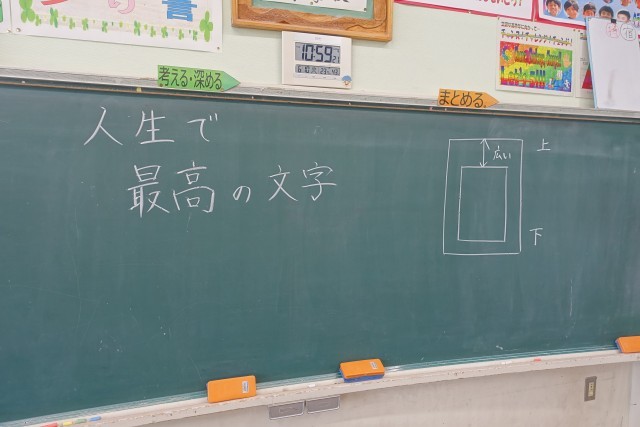 10:59
考える・深める
まとめる
人生で
最高の文字
広い
上
下